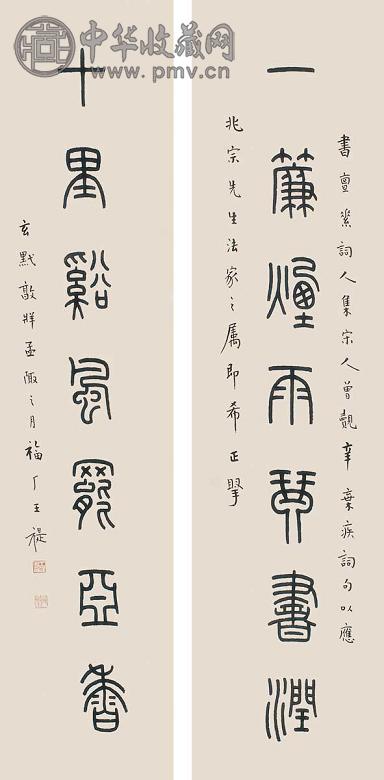 中华收藏网
www.pmv.cn
書亶素詞人集宋人曾覿辛棄疾詞句以應
一簾煙雨琴書潤
兆宗先生法家之属即希正擥
十里谿風罷亞香
玄黓敦牂孟陬之月福厂王禔